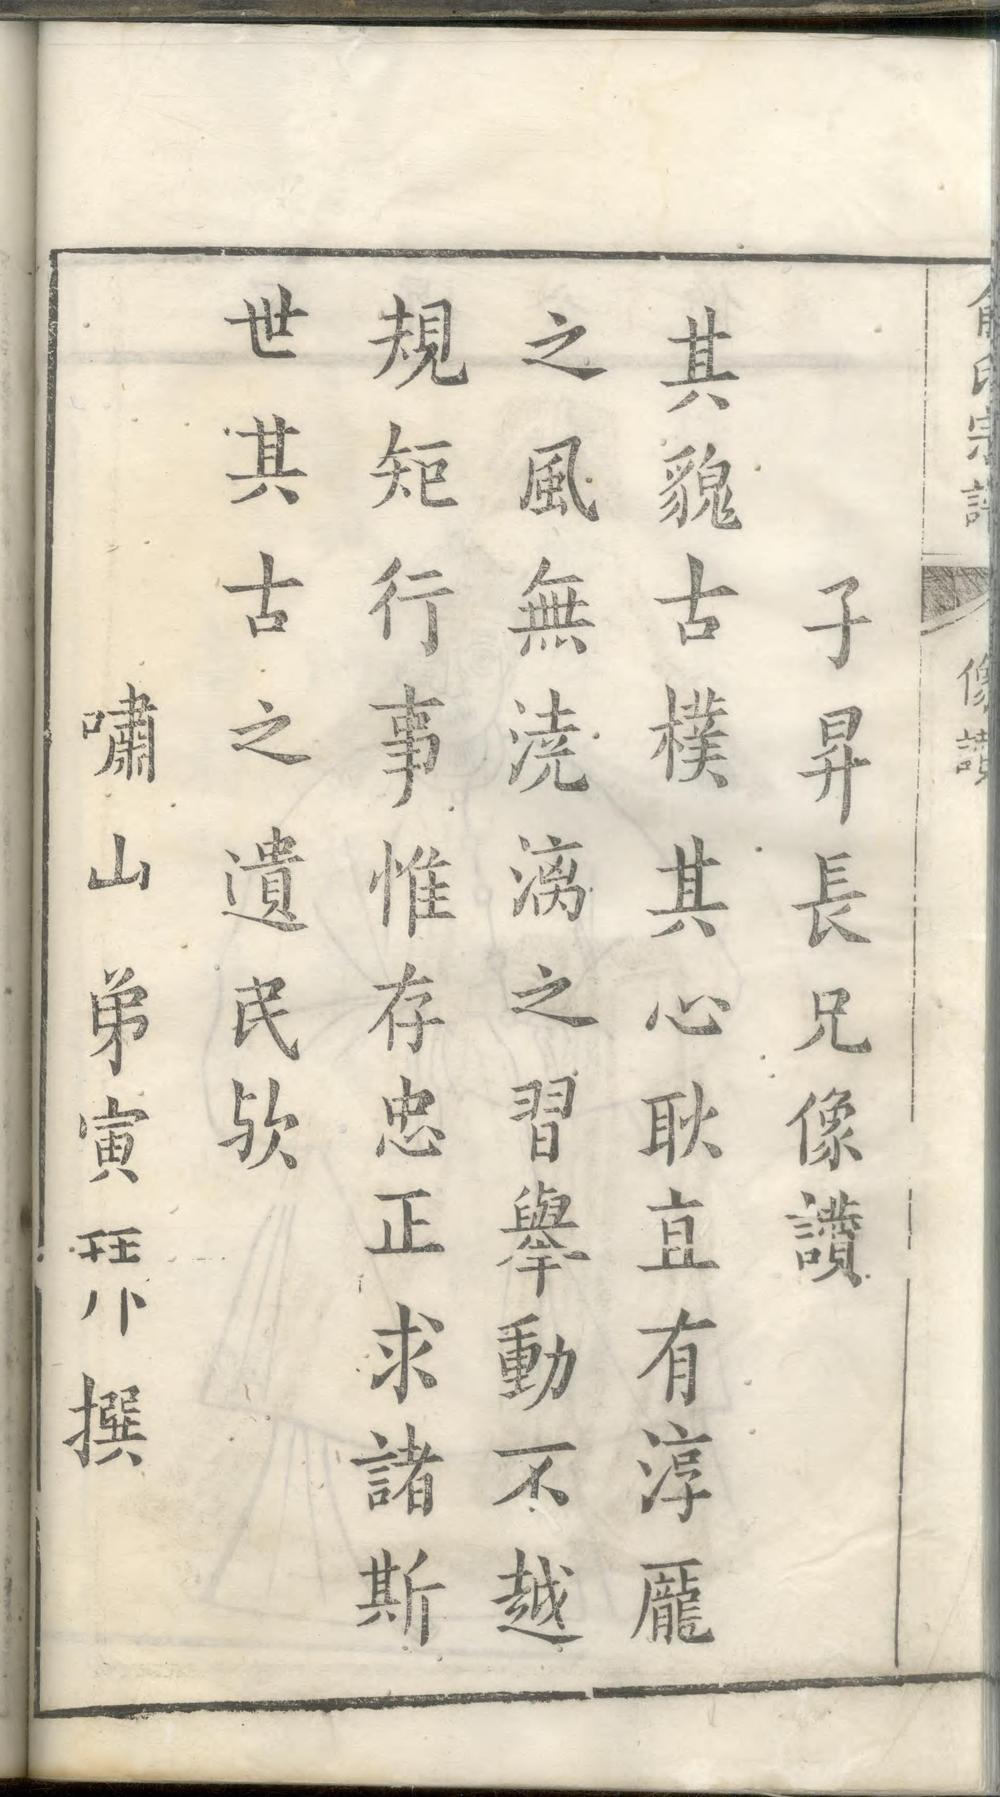 俞氏宗譜 像讃
子昇長兄像讃
其貌古樸其心耿直有淳龎
之風無澆漓之習擧動不越
規矩行事惟存忠正求諸斯
世其古之遺民欤
嘯山弟寅撰